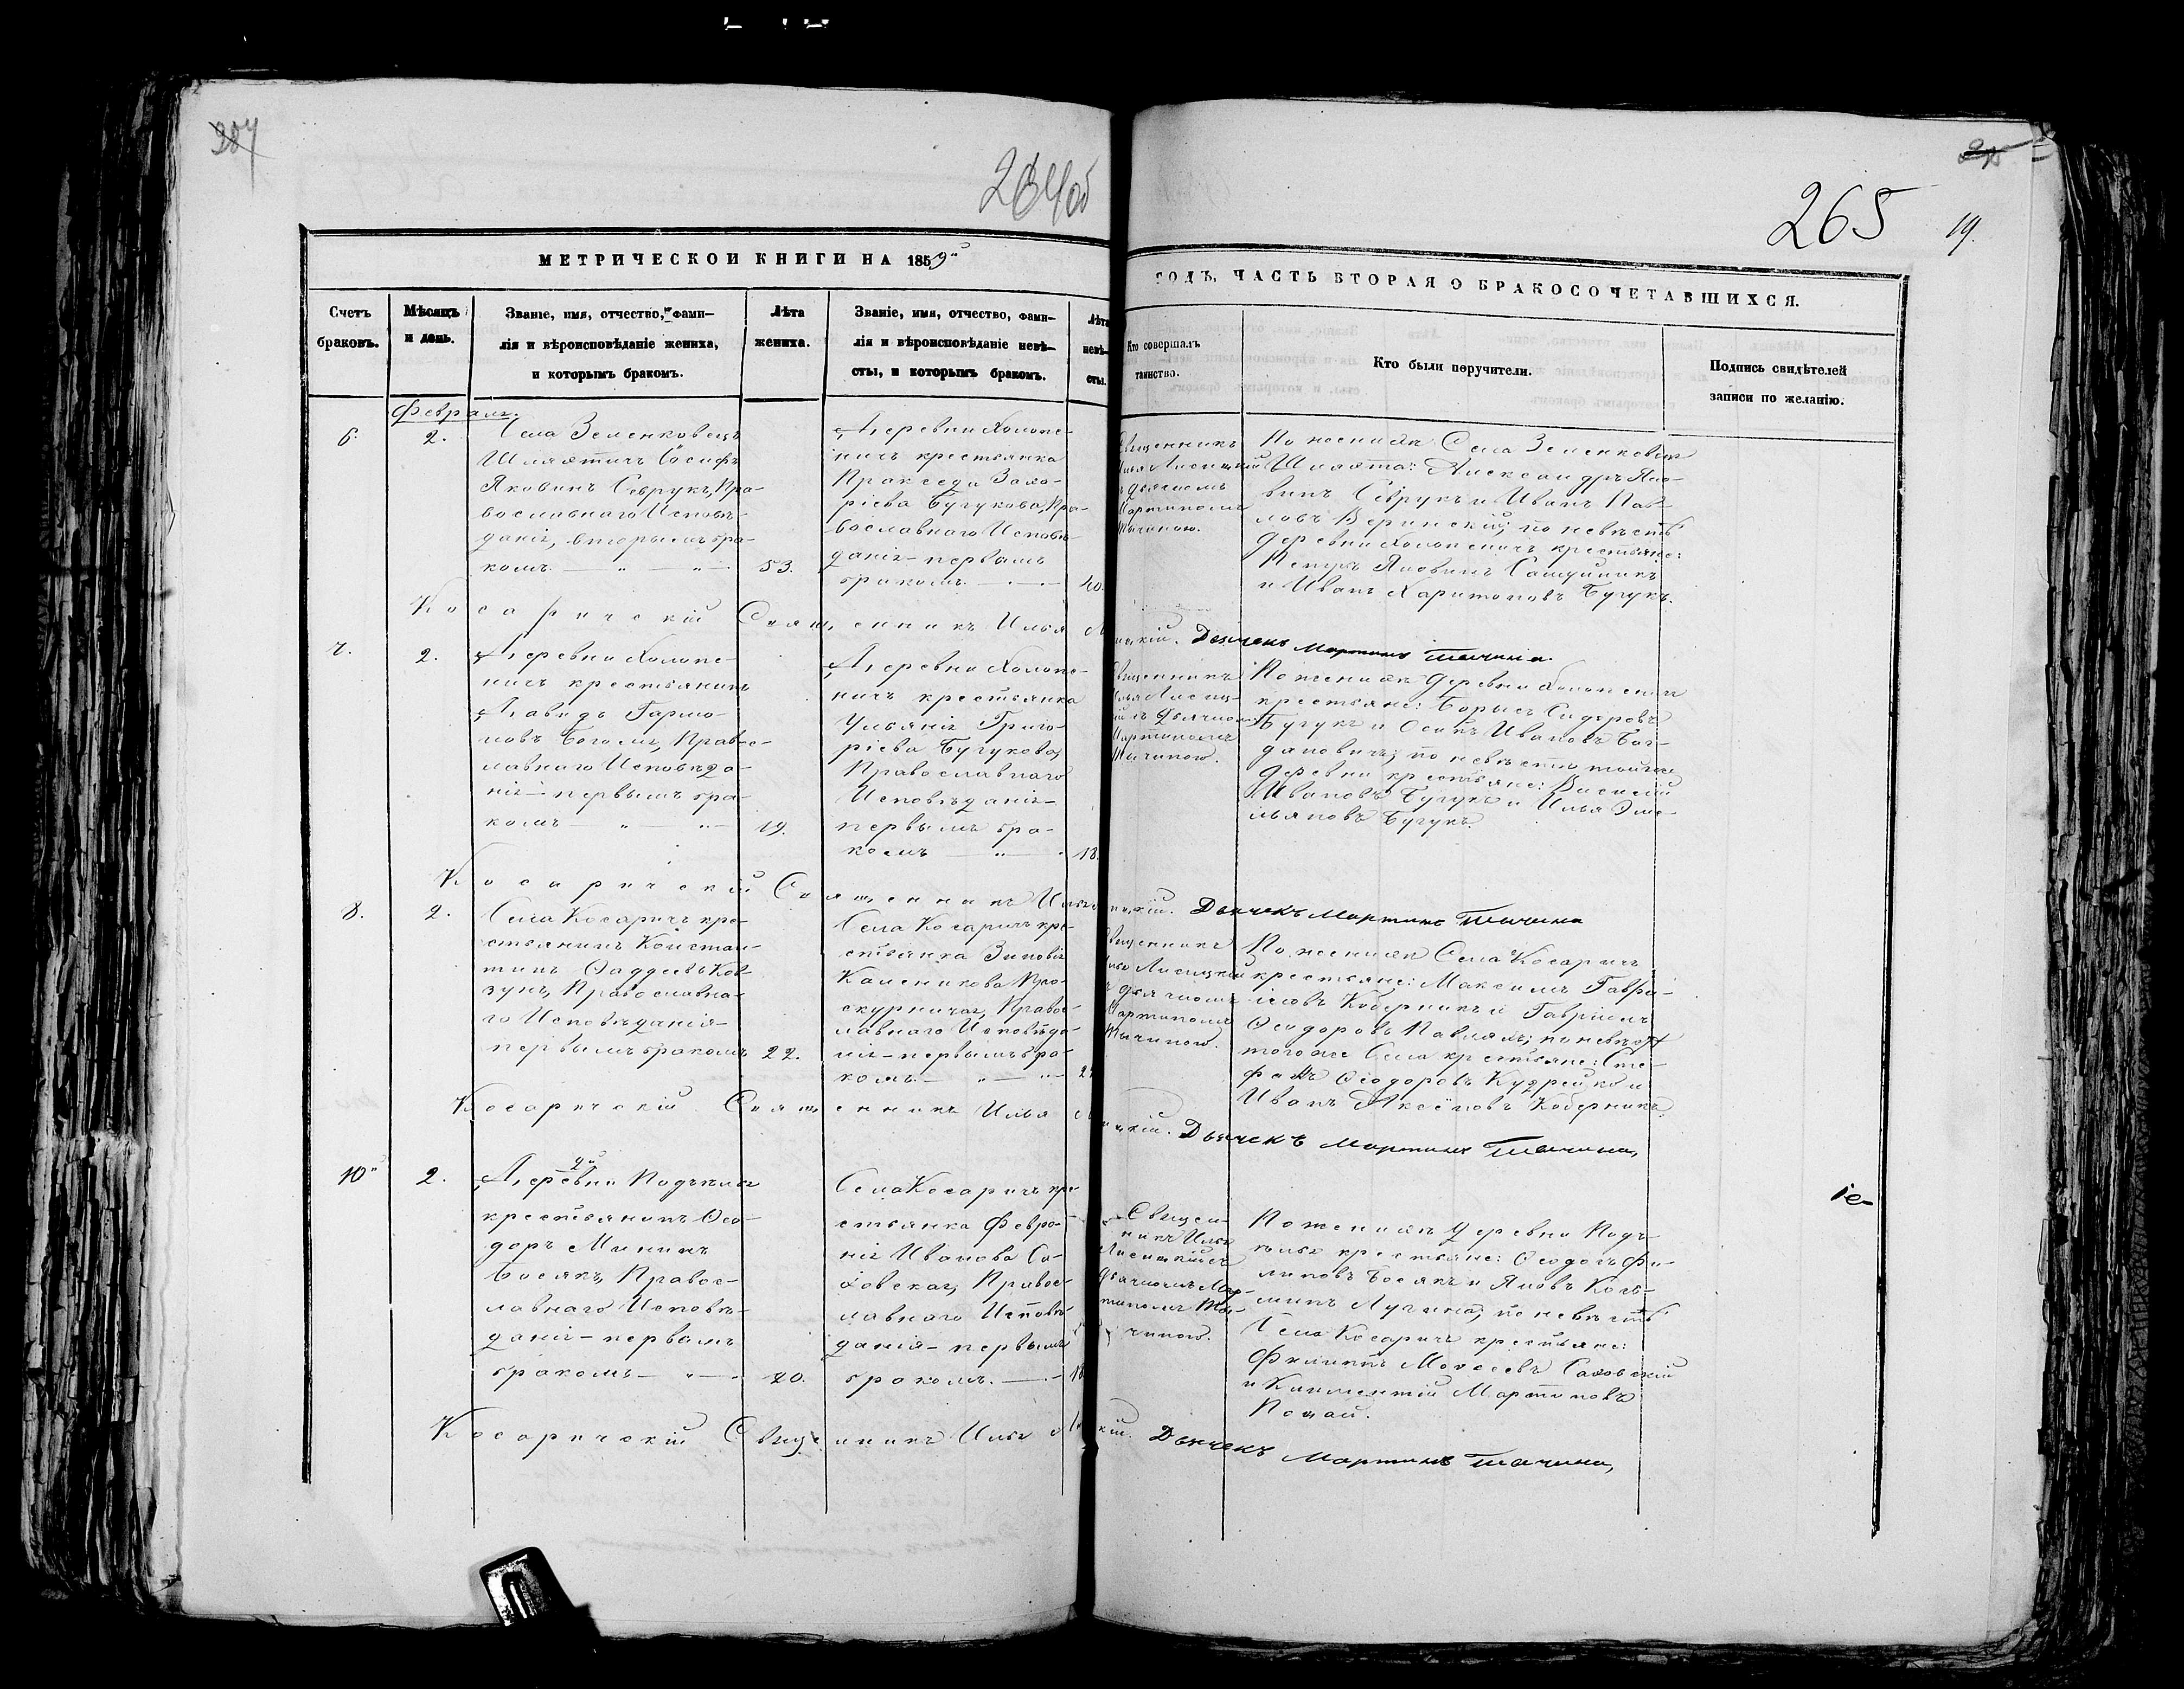 264об
265
19.
МЕТРИЧЕСКОЙ КНИГИ НА 1859й
ГОДЪ, ЧАСТЬ ВТОРАЯ О БРАКОСОЧЕТАВШИХСЯ.
Счетъ
браковъ.
Мѣсяцъ
и день.
Званіе, имя, отчество, фами-
лія и вѣроисповѣданіе жениха,
и которымъ бракомъ.
Лѣта
жениха.
Званіе, имя, отчество, фами-
лія и вѣроисповѣданіе невѣ-
сты, и которымъ бракомъ.
Лѣта
невѣ-
сты.
Кто совершалъ
таинство.
Кто были поручители.
Подпись свидѣтелей
записи по желанію.
Февраль.
6.
2.
Села Зеленковецъ
Шляхтичъ Іосифъ
Яковинъ Севрукъ, Пра-
вославнаго Исповѣ-
данія, вторымъ бра-
комъ.
53.
Деревни Холопе-
ничъ крестьянка
Пракседа Заха-
ріева Бугукова, Пра-
вославнаго Исповѣ-
данія - первымъ
бракомъ.
40.
Священникъ
Илья Лисицкій
съ дьячкомъ
Мартиномъ
Тычиною.
По женихѣ Села Зеленковецъ
Шляхта: Александръ Яко-
винъ Севрукъ и Иванъ Пав-
ловъ Веринскій; по невѣстѣ
деревни Холопеничъ крестьяне:
Яковинъ
и Иванъ Харитоновъ Бугукъ.
Косаричскій Священникъ Илья Лисицкій. Дьячекъ Мартинъ Тычина.
7.
2.
Деревни Холопе-
ничъ крестьянинъ
Давидъ
Правос-
лавнаго Исповѣда-
нія - первымъ бра-
комъ
19.
Деревни Холопе-
ничъ крестьянка
Ульянія Григо-
ріева Бугукова,
Православнаго
Исповѣданія -
первымъ бра-
комъ
18.
Священникъ
Илья Лисиц-
кій съ дьячкомъ
Мартиномъ
Тычиною.
По женихѣ деревни Холопеничъ
крестьяне: Борисъ Сидоровъ
Бугукъ и Осипъ Ивановъ Бог-
дановичъ; по невѣстѣ тойже
деревни крестьяне: Василій
Ивановъ Бугукъ и Илья Эме-
льяновъ Бугукъ.
Косаричскій Священникъ Илья Лисицкій. Дьячекъ Мартинъ Тычина
8.
2.
Села Косаричъ кре-
стьянинъ Констан-
тинъ Фаддеевъ Ков-
зунъ, Православна-
го Исповѣданія -
первымъ бракомъ
22.
Села Косаричъ кре-
стьянка Зиновія
Каленикова Про-
скурничая, Правос-
лавнаго Исповѣда-
нія - первымъ бра-
комъ.
Священникъ
Илья Лисицкій
съ дьячкомъ
Мартиномъ
Тычиною.
По женихѣ Села Косаричъ
крестьяне: Максимъ Гаврі-
иловъ Коберникъ и Гавріилъ
Ѳеодоровъ по невѣстѣ
тогоже Села крестьяне: Сте-
фанъ Ѳеодоровъ Кудрейко и
Иванъ Аксёновъ Коберникъ.
Косаричскій Священникъ Илья Лисицкій. Дьячекъ Мартинъ Тычина,
10й
2.
Деревни Подъельѣ
крестьянинъ Ѳео-
доръ Мининъ
Босякъ, Правос-
лавнаго Исповѣ-
данія - первымъ
бракомъ
20.
Села Косаричъ кре-
стьянка Февро-
нія Иванова Са-
ховская, Правос-
лавнаго Исповѣ-
данія - первымъ
бракомъ.
18
Священ-
никъ Илья
Лисицкій съ
дьячкомъ Мар-
тиномъ Ты-
чиною.
По женихѣ деревни Подъ-
ельѣ крестьяне: Ѳеодоръ Фи-
липовъ Босякъ и Яковъ Козь-
минъ Лучина; по невѣстѣ
Села Косаричъ крестьяне:
Филиппъ Моисеевъ Саховскій
и Климентій Мартиновъ
Косаричскій Священникъ Илья Лисицкій. Дьячекъ Мартинъ Тычина,